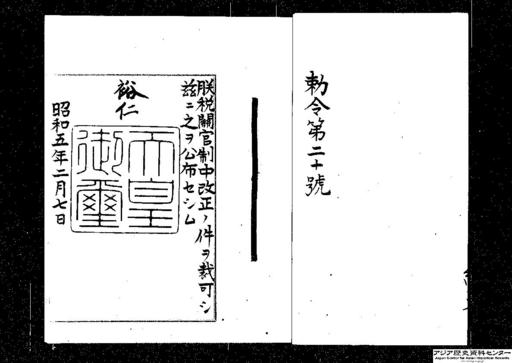 勅令第二十號
朕税關官制中改正ノ件ヲ裁可シ
茲ニ之ヲ公布セシム
裕仁
天皇
御璽
昭和五年二月七日
アジア歴史資料センター
Japan Center for Asian Historical Records